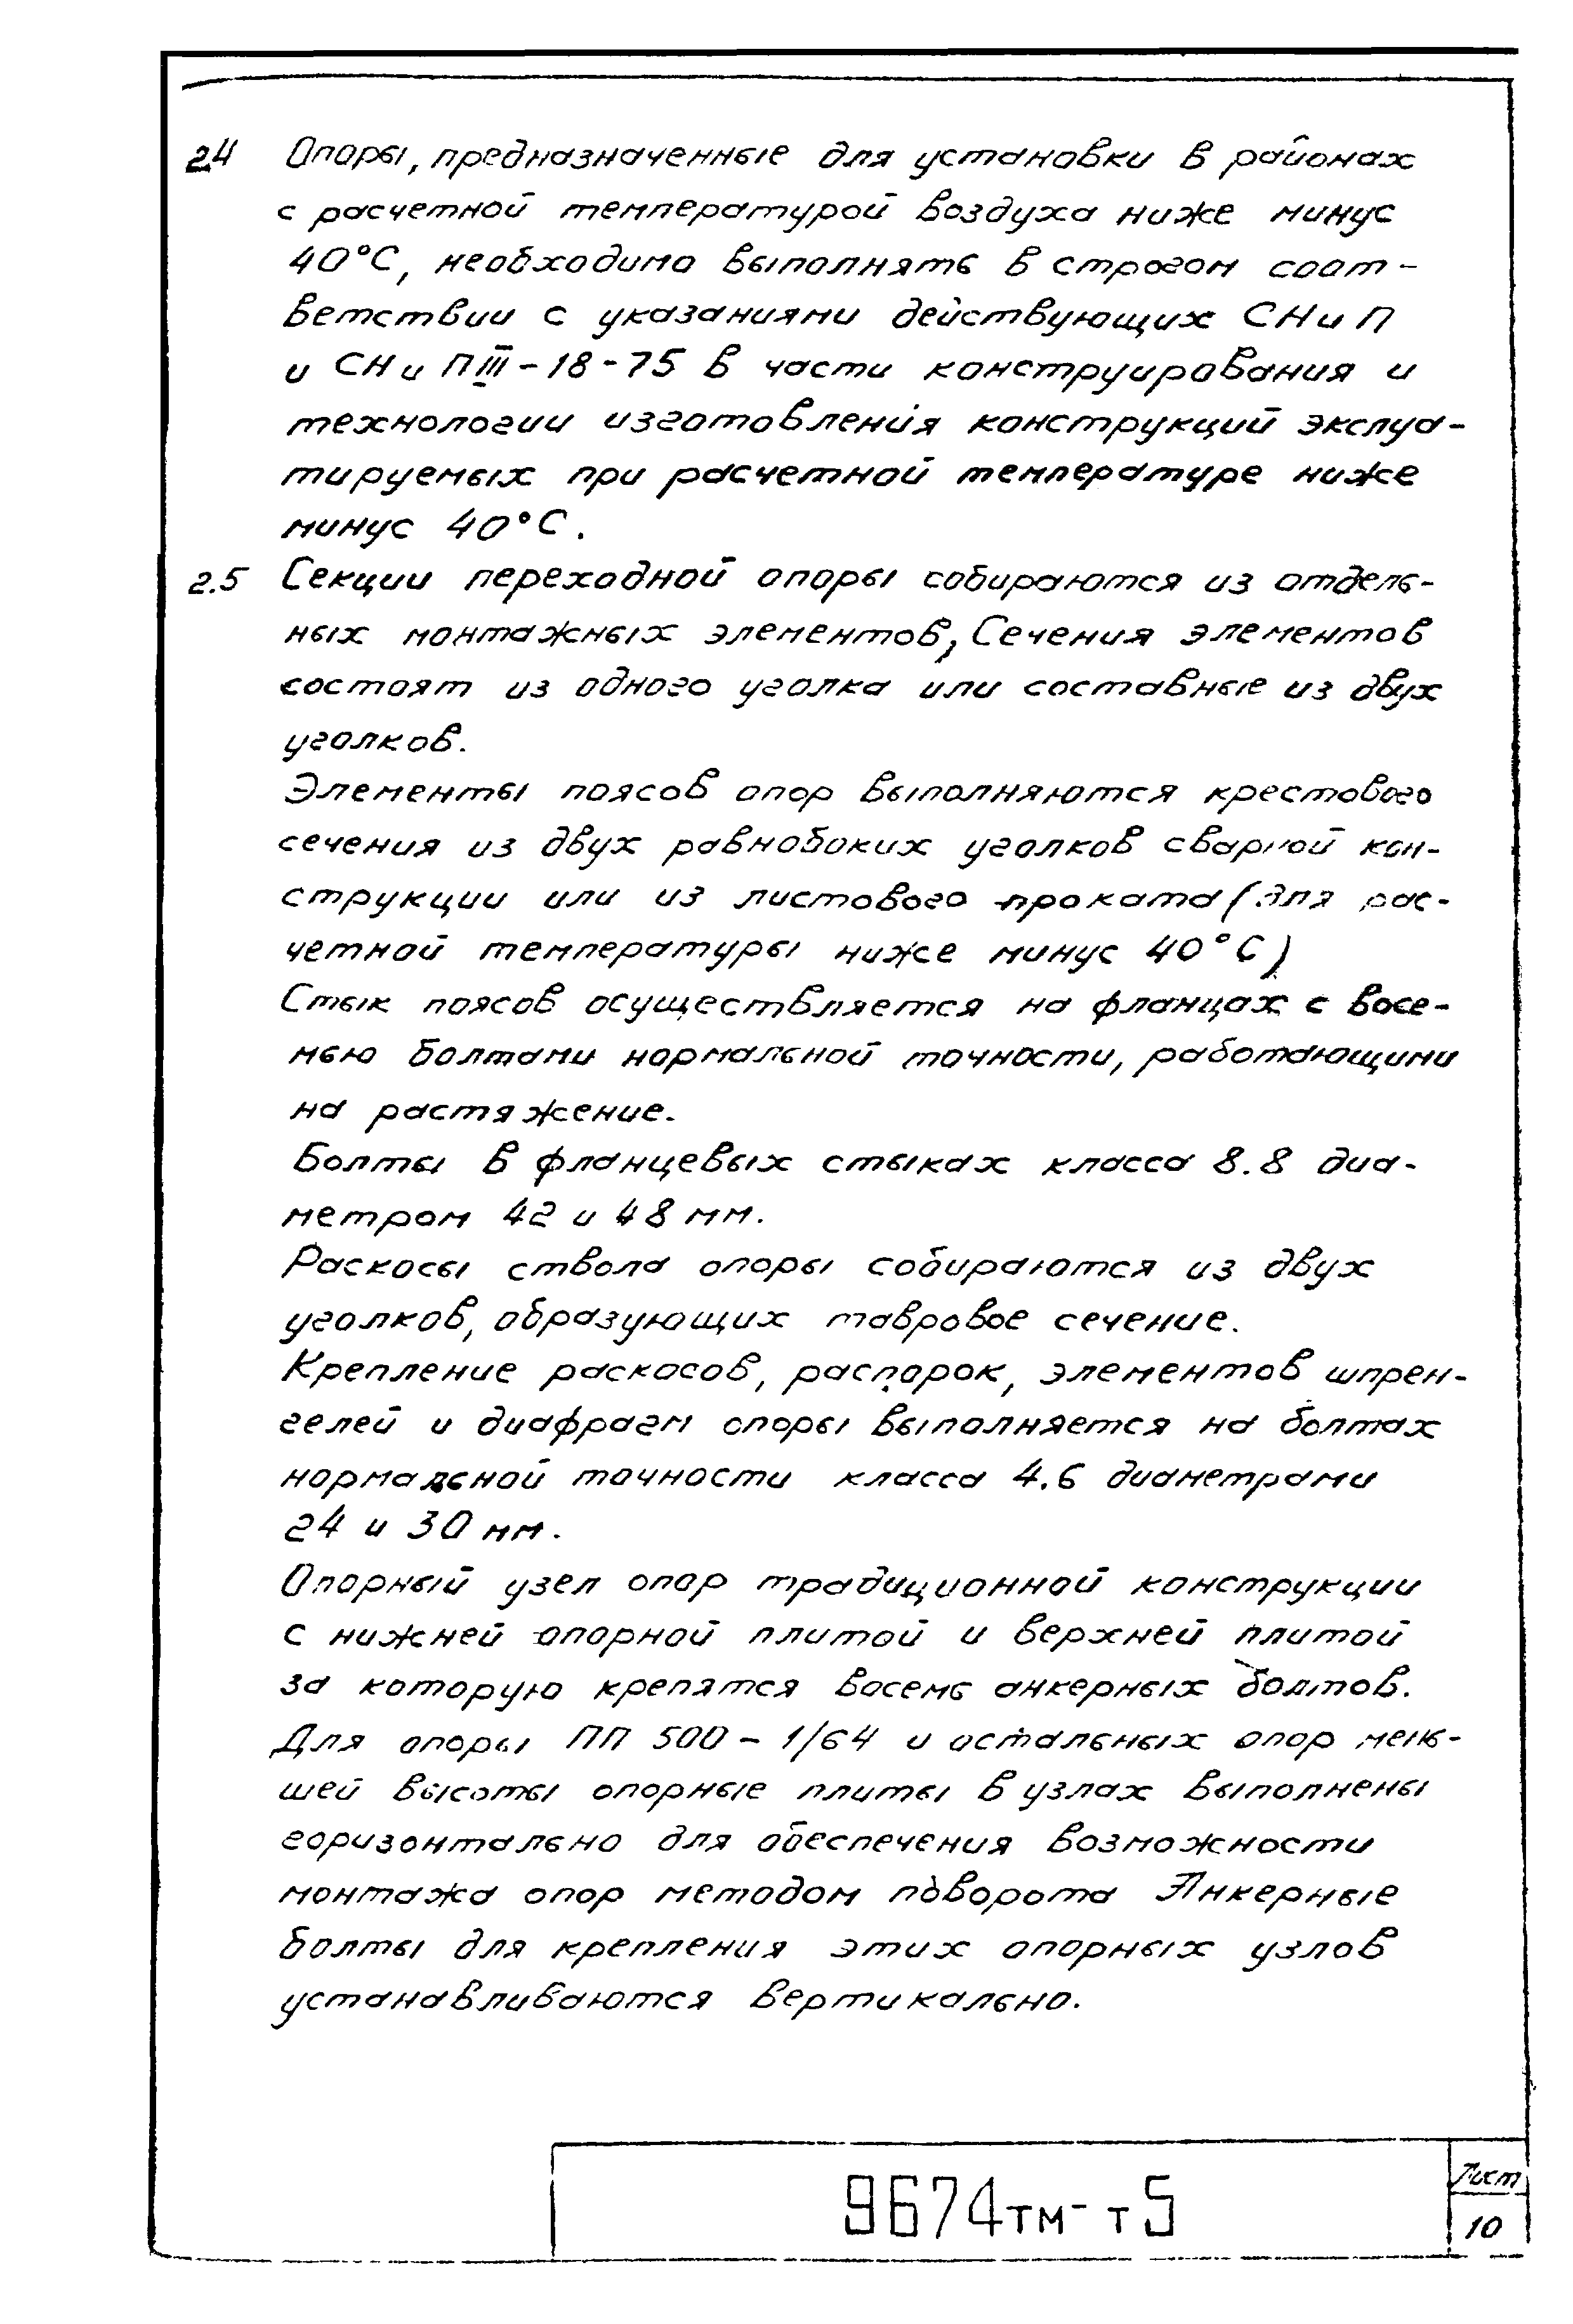 2.4 Опоры, предназначенные для установки в районах
с расчетной температурой воздуха ниже минус
40°С, необходимо выполнять в строгом соот-
ветствии с указаниями действующих СНиП
и СНиП III-18-75 в части конструирования и
технологии изготовления конструкций эксплуа-
тируемых при расчетной температуре ниже
минус 40°С.
2.5 Секции переходной опоры собираются из отдель-
ных монтажных элементов, Сечения элементов
состоят из одного уголка или составные из двух
уголков.
Элементы поясов опор выполняются крестового
сечения из двух равнобоких уголков сварной кон-
струкции или из листового проката (для рас-
четной температуры ниже минус 40°С)
Стык поясов осуществляется на фланцах с восе-
мью болтами нормальной точности, работающими
на растяжение.
Болты в фланцевых стыках класса 8.8 диа-
метром 42 и 48 мм.
Раскосы ствола опоры собираются из двух
уголков, образующих тавровое сечение.
Крепление раскосов, распорок, элементов шпрен-
гелей и диафрагм опоры выполняется на болтах
нормальной точности класса 4.6 диаметрами
24 и 30 мм.
Опорный узел опор традиционной конструкции
с нижней опорной плитой и верхней плитой
за которую крепятся восемь анкерных болтов.
Для опоры ПП 500-1/64 и остальных опор мень-
шей высоты опорные плиты в узлах выполнены
горизонтально для обеспечения возможности
монтажа опор методом поворота Анкерные
болты для крепления этих опорных узлов
устанавливаются вертикально.
9674тм-т5
Лист
10